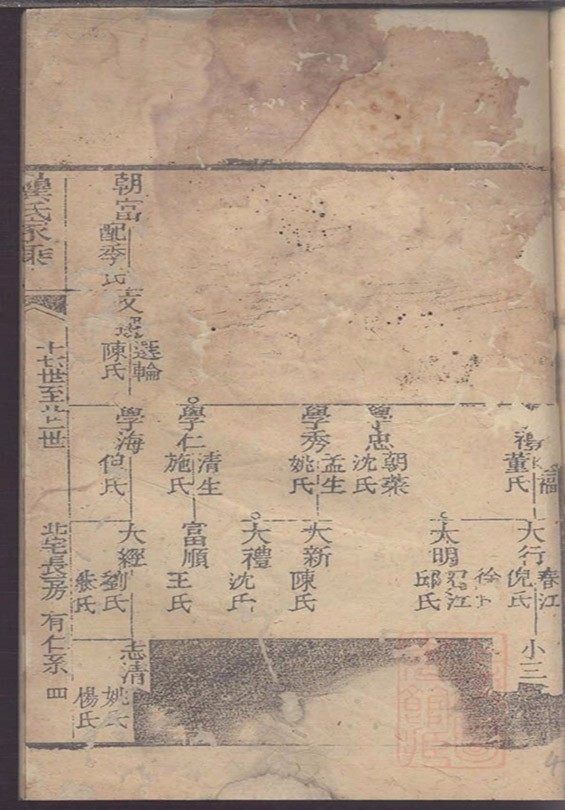 福
董氏
春江
大行
倪氏
小三
徐
大明
江
邱氏
學忠
朝榮
沈氏
學秀
孟生
姚氏
大新
陳氏
大禮
沈氏
學仁
清生
施氏
富順
王氏
朝富
配季氏
支
選輪
陳氏
學海
伯氏
大經
劉氏
朱氏
志清
姚氏
楊氏
龔氏家乘
十七世至廿世
北宅長房 有仁系 四
4